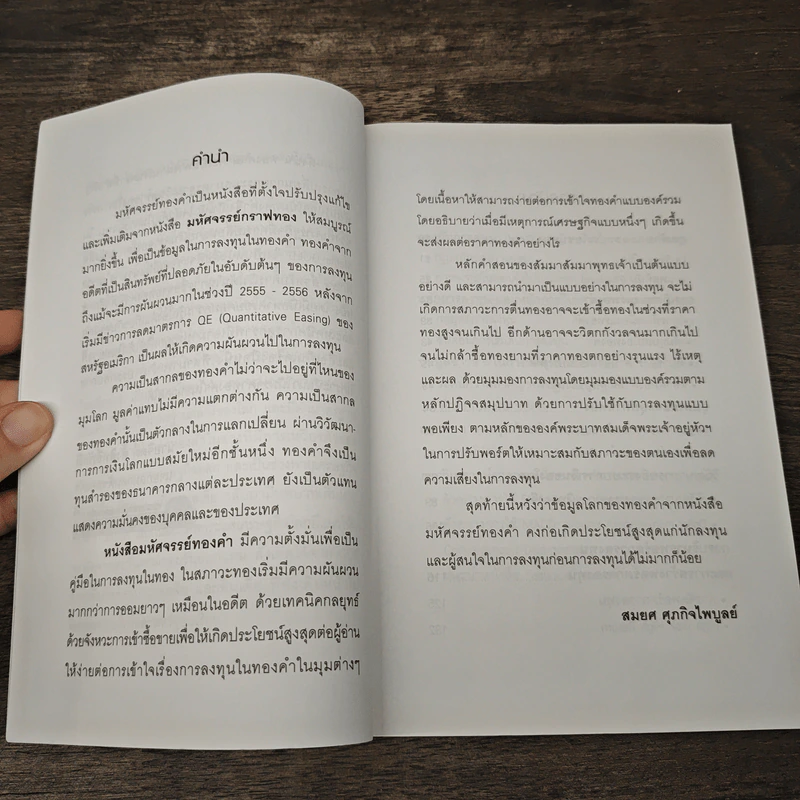 คำนำ
มหัศจรรย์ทองคำเป็นหนังสือที่ตั้งใจปรับปรุงแก้ไข
และเพิ่มเติมจากหนังสือ มหัศจรรย์กราฟทอง ให้สมบูรณ์
มากยิ่งขึ้น เพื่อเป็นข้อมูลในการลงทุนในทองคำ ทองคำจาก
อดีตที่เป็นสินทรัพย์ที่ปลอดภัยในอันดับต้นๆ ของการลงทุน
ถึงแม้จะมีการผันผวนมากในช่วงปี 2555 - 2556 หลังจาก
เริ่มมีข่าวการลดมาตรการ QE (Quantitative Easing) ของ
สหรัฐอเมริกา เป็นผลให้เกิดความผันผวนไปในการลงทุน
ความเป็นสากลของทองคำไม่ว่าจะไปอยู่ที่ไหนของ
มุมโลก มูลค่าแทบไม่มีความแตกต่างกัน ความเป็นสากล
ของทองคำนั้นเป็นตัวกลางในการแลกเปลี่ยน ผ่านวิวัฒนา-
การการเงินโลกแบบสมัยใหม่อีกชั้นหนึ่ง ทองคำจึงเป็น
ทุนสำรองของธนาคารกลางแต่ละประเทศ ยังเป็นตัวแทน
แสดงความมั่นคงของบุคคลและของประเทศ
หนังสือมหัศจรรย์ทองคำ มีความตั้งมั่นเพื่อเป็น
คู่มือในการลงทุนในทอง ในสภาวะทองเริ่มมีความผันผวน
มากกว่าการออมยาวๆ เหมือนในอดีต ด้วยเทคนิคกลยุทธ์
ด้วยจังหวะการเข้าซื้อขายเพื่อให้เกิดประโยชน์สูงสุดต่อผู้อ่าน
ให้ง่ายต่อการเข้าใจเรื่องการลงทุนในทองคำในมุมต่างๆ
โดยเนื้อหาให้สามารถง่ายต่อการเข้าใจทองคำแบบองค์รวม
โดยอธิบายว่าเมื่อมีเหตุการณ์เศรษฐกิจแบบหนึ่งๆ เกิดขึ้น
จะส่งผลต่อราคาทองคำอย่างไร
หลักคำสอนของสัมมาสัมมาพุทธเจ้าเป็นต้นแบบ
อย่างดี และสามารถนำมาเป็นแบบอย่างในการลงทุน จะไม่
เกิดการสภาวะการตื่นทองอาจจะเข้าซื้อทองในช่วงที่ราคา
ทองสูงจนเกินไป อีกด้านอาจจะวิตกกังวลจนมากเกินไป
จนไม่กล้าซื้อทองยามที่ราคาทองตกอย่างรุนแรง ไร้เหตุ
และผล ด้วยมุมมองการลงทุนโดยมุมมองแบบองค์รวมตาม
หลักปฏิจจสมุปบาท ด้วยการปรับใช้กับการลงทุนแบบ
พอเพียง ตามหลักขององค์พระบาทสมเด็จพระเจ้าอยู่หัวฯ
ในการปรับพอร์ตให้เหมาะสมกับสภาวะของตนเองเพื่อลด
ความเสี่ยงในการลงทุน
สุดท้ายนี้หวังว่าข้อมูลโลกของทองคำจากหนังสือ
มหัศจรรย์ทองคำ คงก่อเกิดประโยชน์สูงสุดแก่นักลงทุน
และผู้สนใจในการลงทุนก่อนการลงทุนได้ไม่มากก็น้อย
สมยศ ศุภกิจไพบูลย์